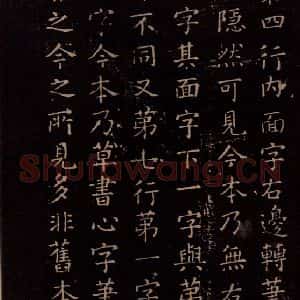 第四行內面字右邊轉筆
隱然可見今本乃無右
字其面字下一字與第
不同又第七行第一字
字今本乃草書心字筆
之今之所見多非舊本
Shufawang.CN